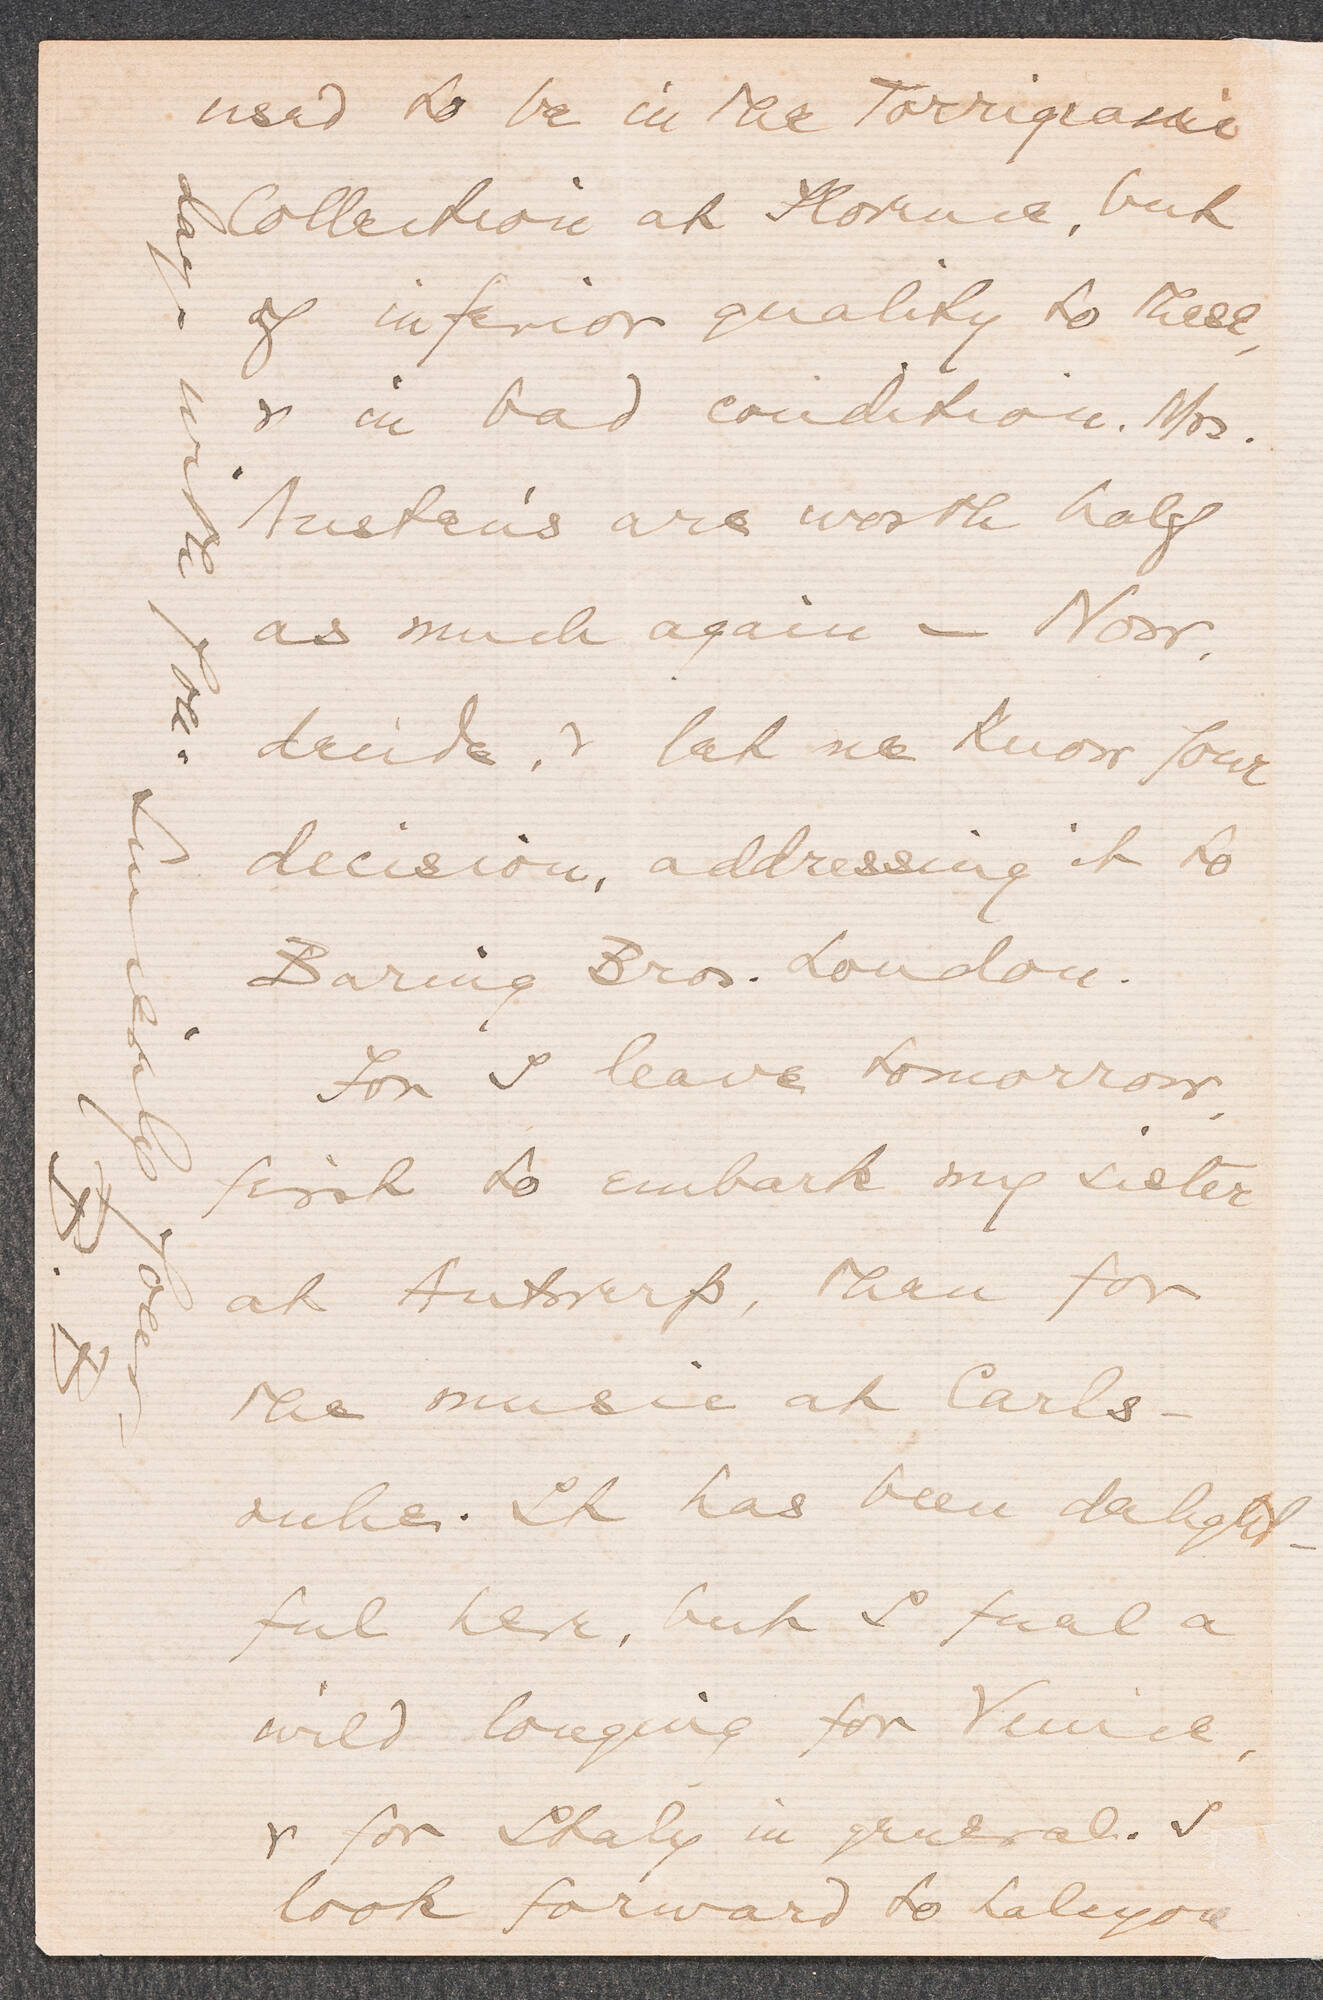 used to be in the Torrigiani
Collection at Florence, but
of inferior quality to these,
& in bad condition. Mrs.
Austen's are worth half
as much again — Now,
decide, & let me know your
decision, addressing it to
Baring Bros. London.
For I leave tomorrow,
first to embark my sister
at Antwerp, then for
the music at Carls-
ruhe. It has been delight-
ful here, but I feel a
wild longing for Venice,
& for Italy in general. I
look forward to halcyon
days with you. Sincerely Yours
B. B.